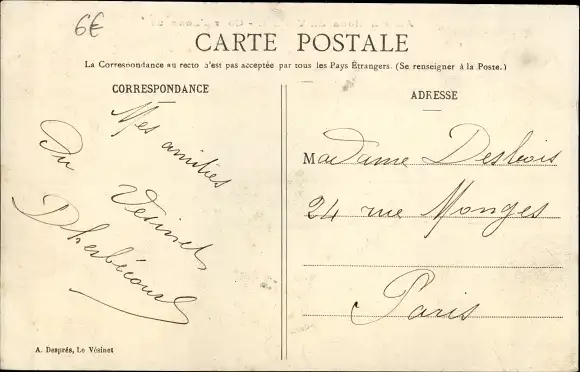 6€
CARTE POSTALE
La Correspondance au recto n'est pas acceptée par tous les Pays Étrangers. (Se renseigner à la Poste.)
CORRESPONDANCE
Mes amitiés
Du Vésinet
D'herbécourt
ADRESSE
Madame Desbois
24 rue Monges
Paris
A. Després, Le Vésinet